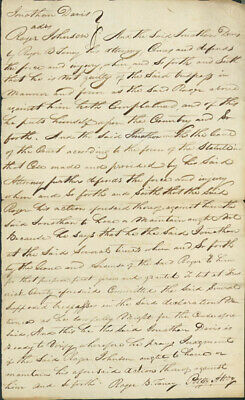 Jonathan Davis
ads
Roger Johnson } And the said Jonathan Davis
by Roger B. Taney his attorney Comes and defends
the force and injury when and so forth and saith
that he is not guilty of the said trespass in
manner and form as the said Roger above
against him hath Complained and of this
he puts himself upon the Country and So
forth. And the said Jonathan by the leave
of the Court according to the form of the Statute in
that Case made and provided by his said
Attorney further defends the force and injury
when and so forth and saith that the said
Roger his action aforesaid thereof against him the
said Jonathan to have or maintain ought not
Because he says that he the said Jonathan
at the said Several times when and so forth
by the leave and license of the said Roger to him
for that purpose first given and granted
Committed the said Several
supposed trespasses in the said declaration men-
tioned as he lawfully might for the Cause afore
said. And this he the said Jonathan Davis is
ready to Verify wherefore he prays Judgment
if the said Roger Johnson ought to have or
maintain his aforesaid action thereof against
him and so forth. Roger B. Taney Atty